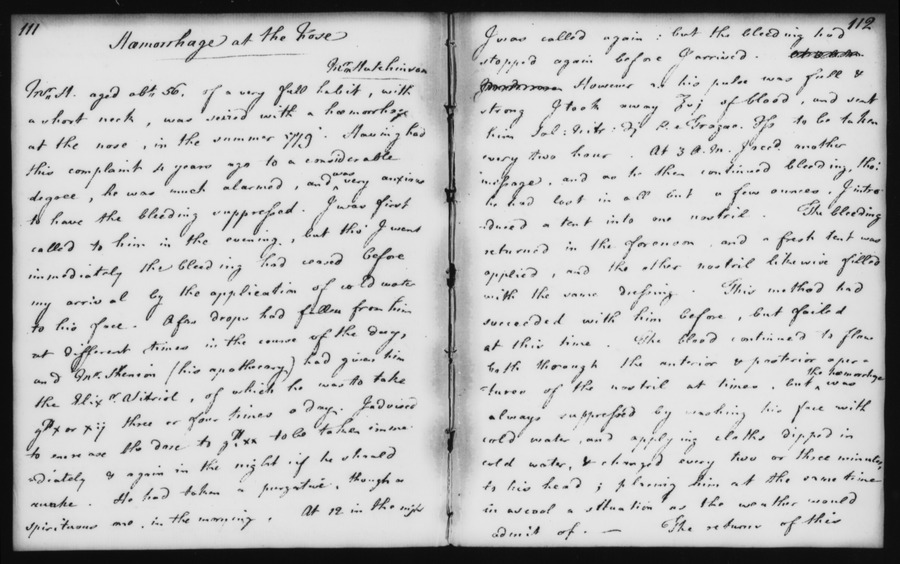 111
Hæmorrhage at the Nose
Mr. Hutchinson
Mr. H. aged abt. 56. of a very full habit, with
a short neck, was seized with a hæmorrhage
at the nose, in the summer 1779. Having had
this complaint 4 years ago to a considerable
degree, he was much alarmed, and was very anxious
to have the bleeding suppressed. I was first
called to him in the evening, but tho' I went
immediately the bleeding had ceased before
my arrival by the application of cold water
to his face. A few drops had fallen from him
at different times in the course of the day,
and Mr. (his apothecary) had given him
the Elixr. Vitriol, of which he was to take
gtt x or xij three or four times a day. I advised
to increase the dose to gtt xx to be taken imme-
-diately & again in the night if he should
awake. He had taken a purgative, though a
spirituous one, in the morning. At 12 in the night
112
I was called again : but the bleeding had
stopped again before I arrived.
However as his pulse was full &
strong I took away ℥vj of blood, and sent
him Sal: Nitr: ʒj to be taken
every two hours. At 3 A.M. I recd. another
message, and as he then continued bleeding, tho'
he had lost in all but a few ounces, I intro-
-duced a tent into one nostril. The bleeding
returned in the forenoon, and a fresh tent was
applied and the other nostril likewise filled
with the same dressing. This method had
succeeded with him before, but failed
at this time. The blood continued to flow
both through the anterior & posterior aper-
-tures of the nostril at times, but the hæmorrhage was
always suppressed by washing his face with
cold water, and applying cloths dipped in
cold water, & changed every two or three minutes,
to his head ; placing him at the same time
in as cool a situation as the weather would
admit of. — The returns of this